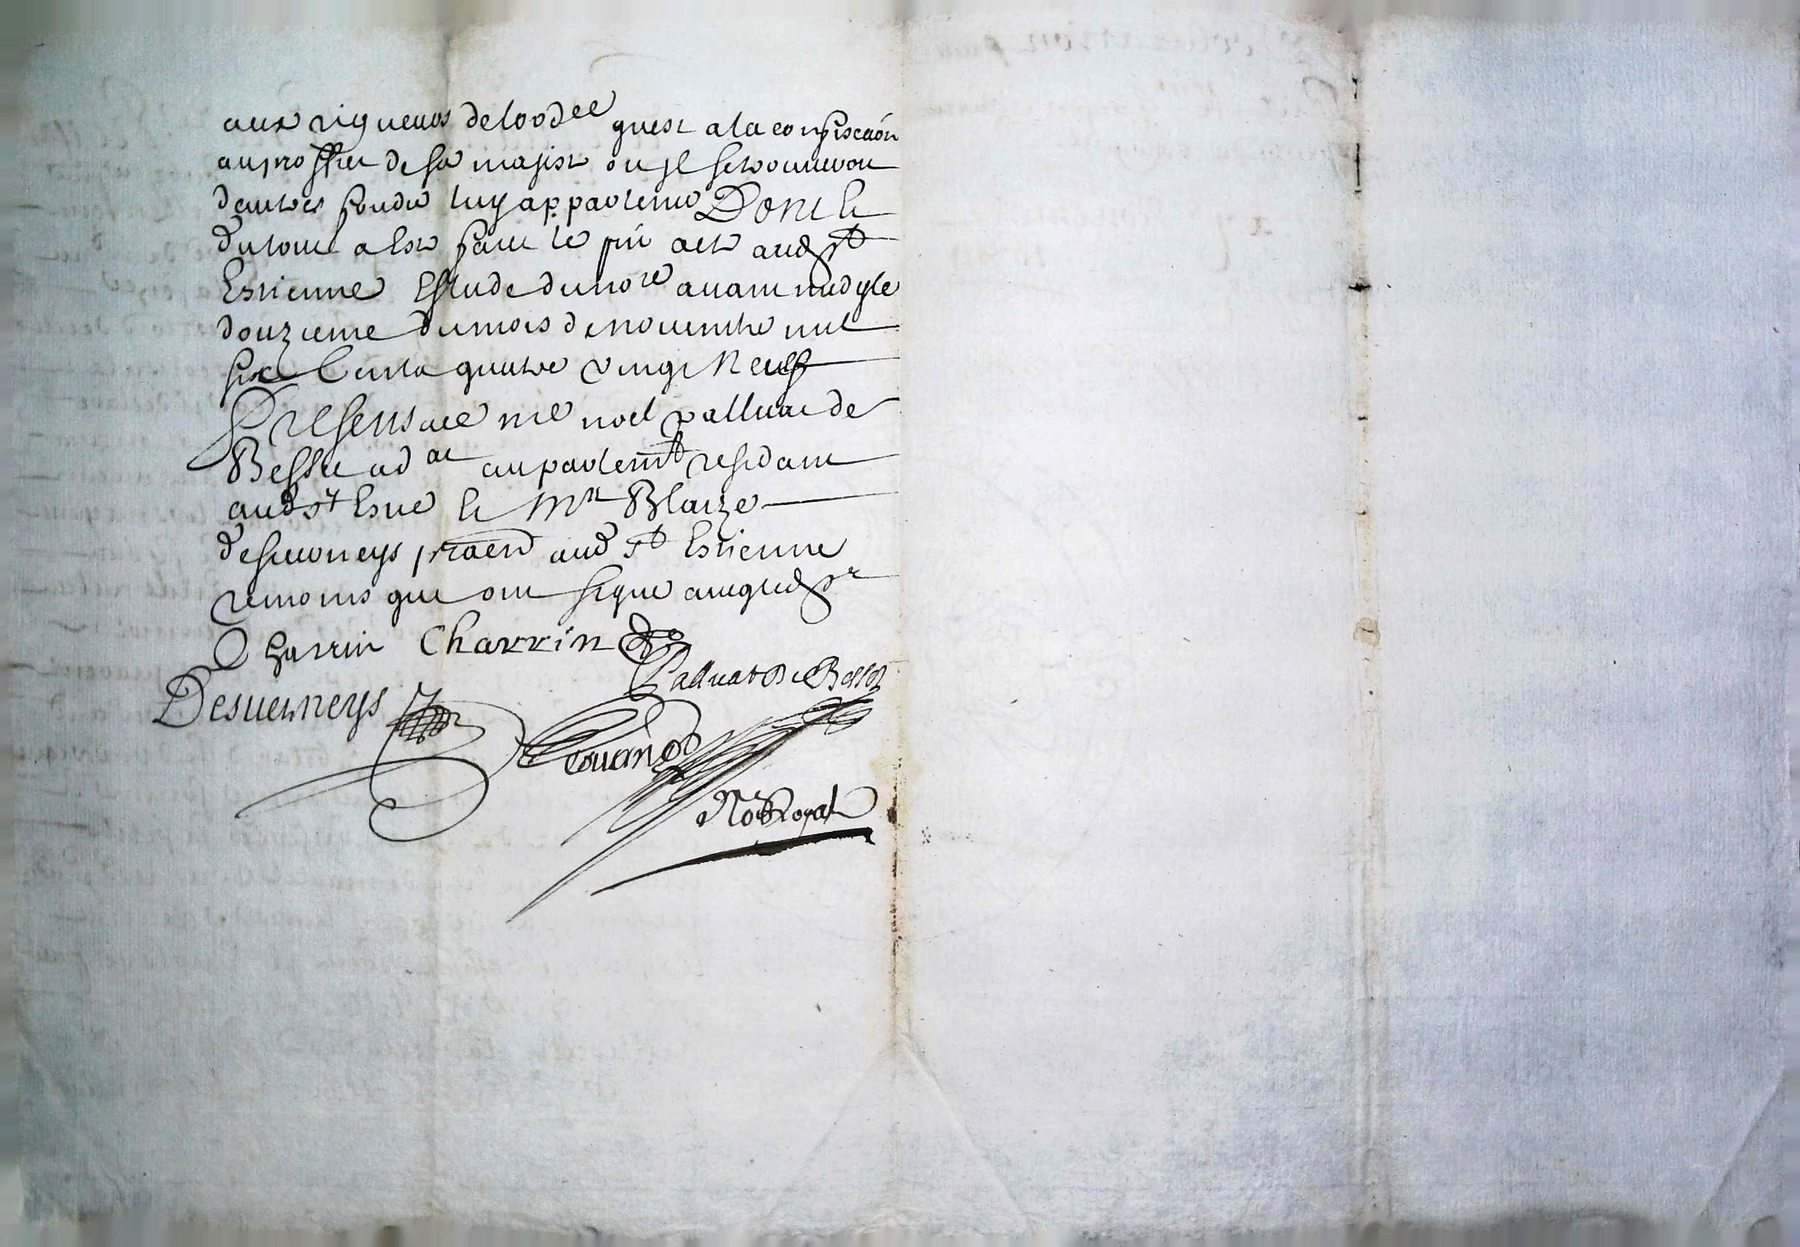 aux rigueurs de lordce quest a la confisca̅on
au proffit de sa majeste ou il se trouveroit
dautres fonds luy appartenir Dont et
du tout a este faict le pñt acte aud st
Estienne Estude du nore avant midy le
douzieme du mois de novembre mil
six Cents quatre vingt Neuf
Presens ace me noel palluat de
Besset adat au parlemt residant
aud st Esne et Mre Blaize
desverneys praen aud st Estienne
temoins qui ont signe avec led sr
Charrin Charrin
Palluat De Besset
Desverneys
Tournot
No Royal